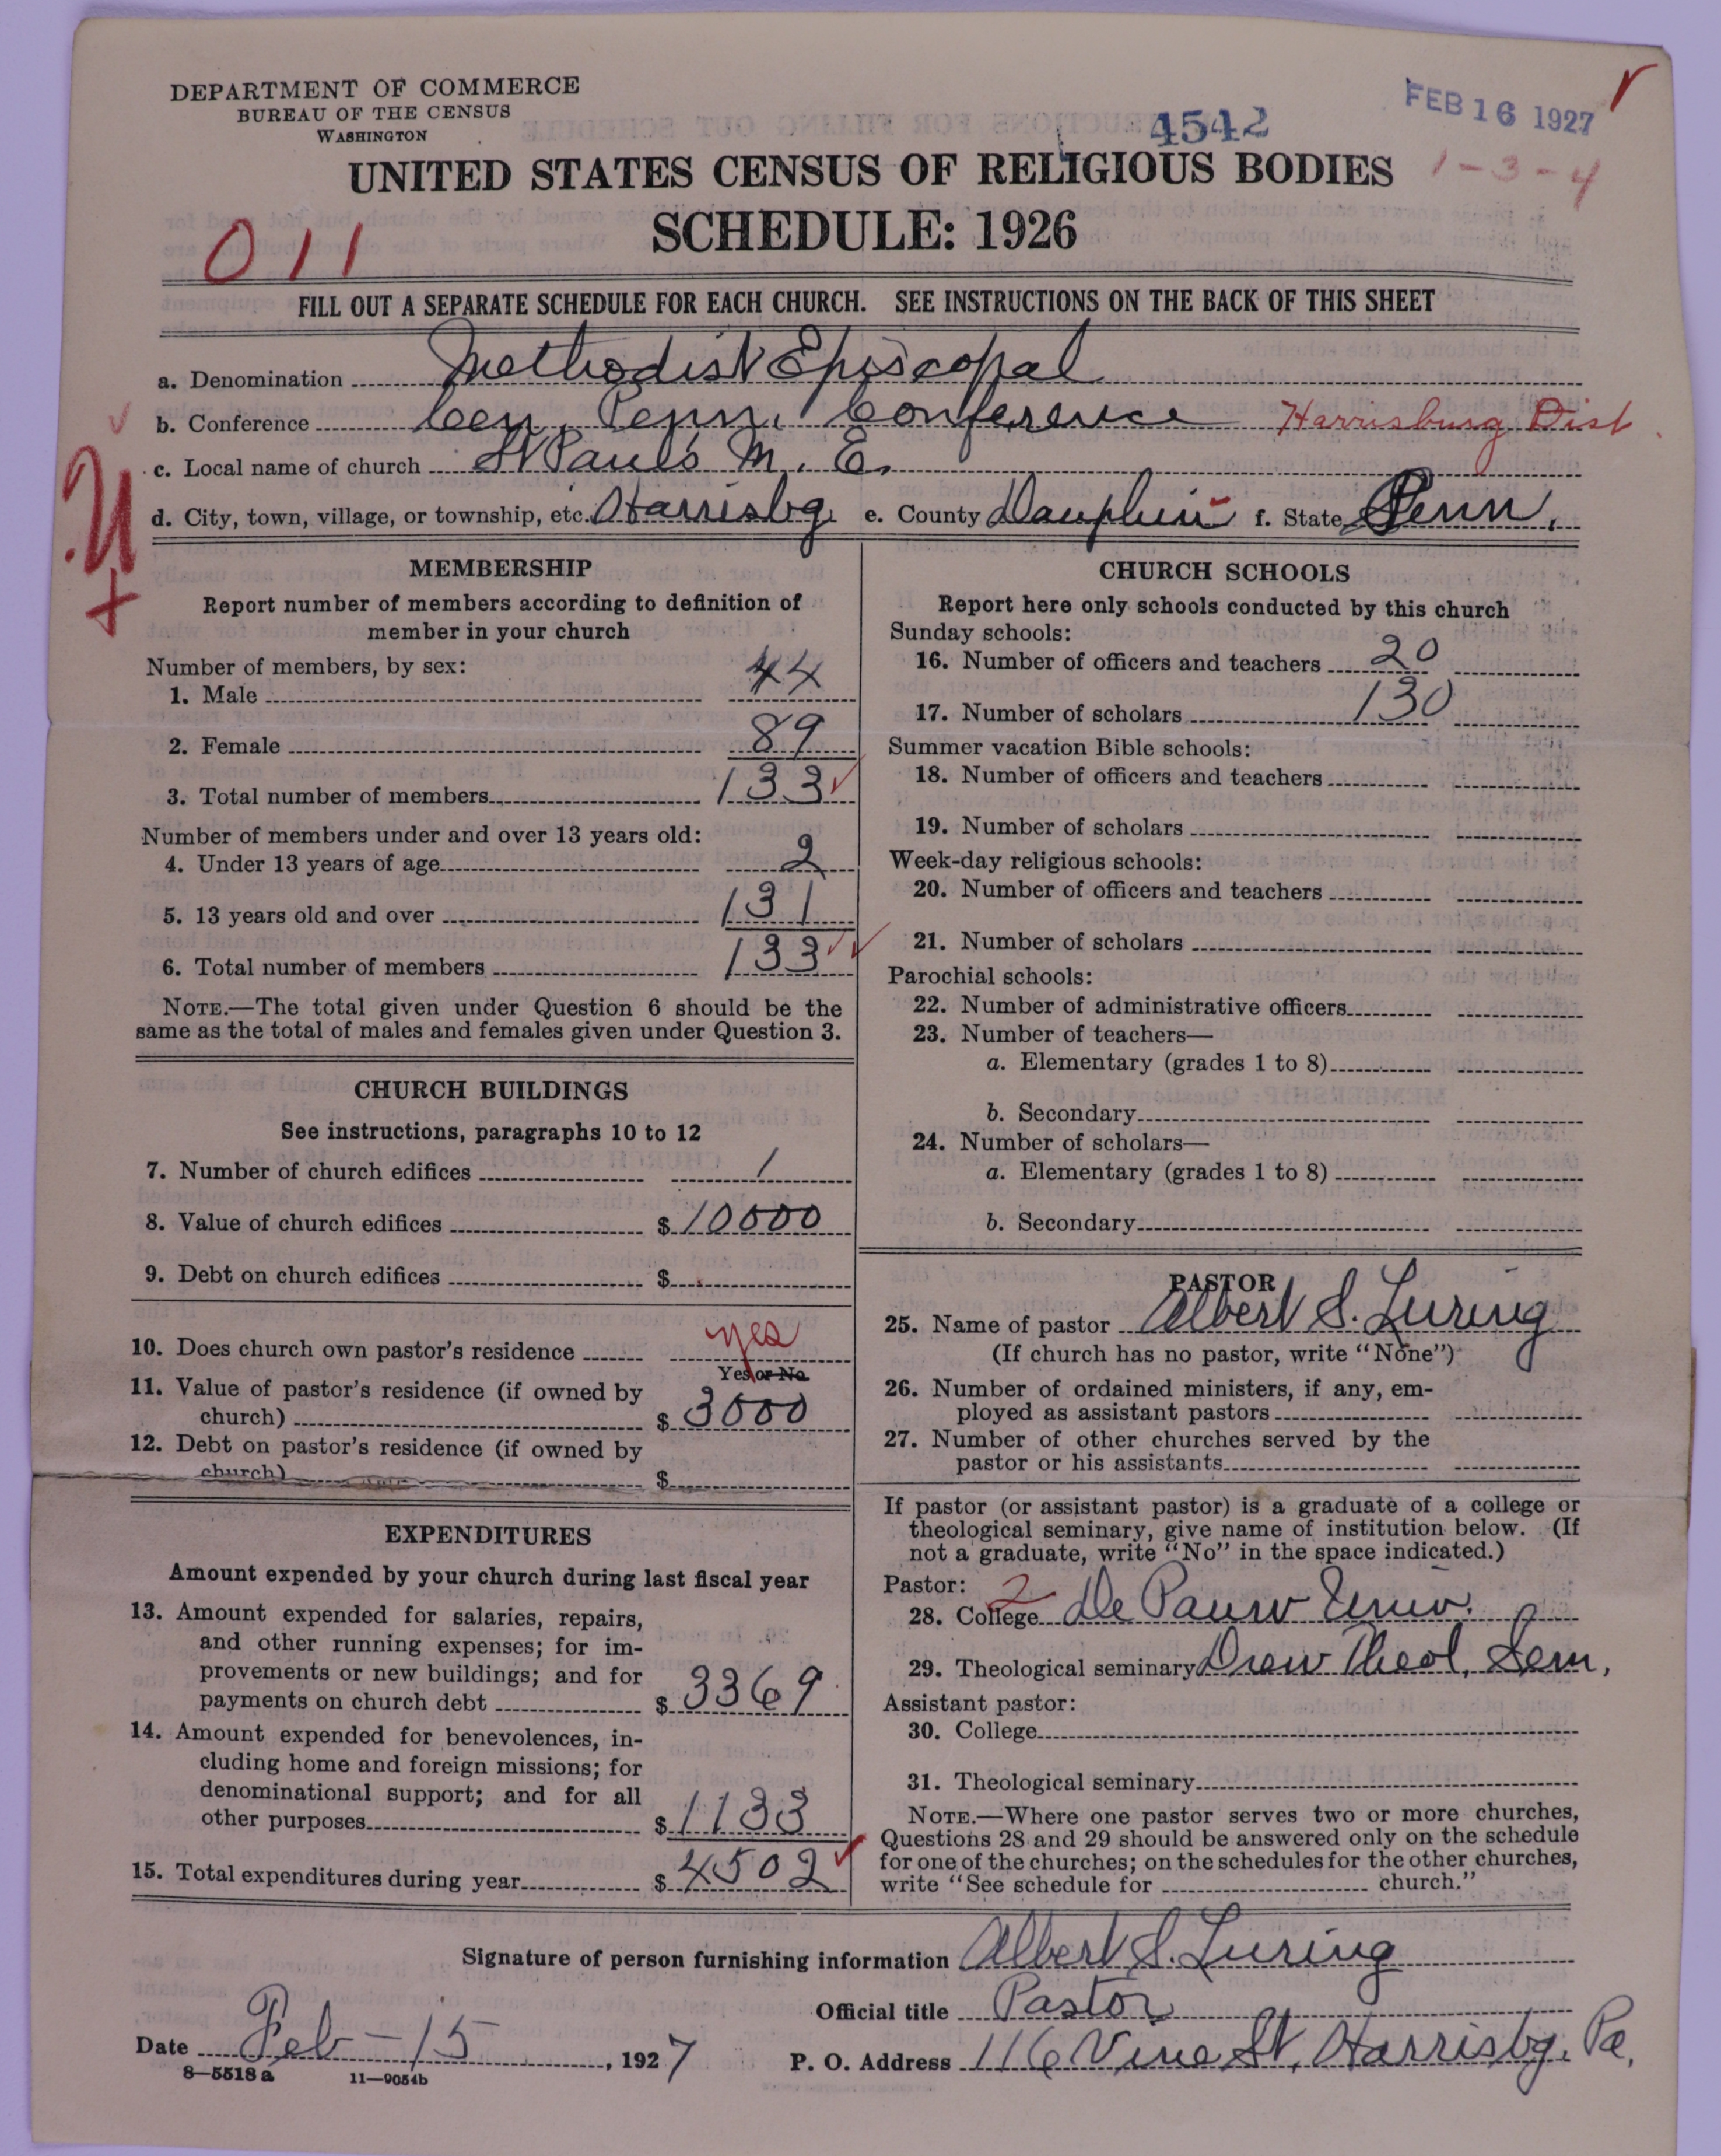 DEPARTMENT OF COMMERCE
BUREAU OF THE CENSUS
WASHINGTON
4542
FEB 16 1927
UNITED STATES CENSUS OF RELIGIOUS BODIES
1-3-4
SCHEDULE: 1926
011
FILL OUT A SEPARATE SCHEDULE FOR EACH CHURCH. SEE INSTRUCTIONS ON THE BACK OF THIS SHEET
a. Denomination Methodist Episcopal
b. Conference Cen. Penn. Conference Harrisburg Dist.
c. Local name of church St Paul's M. E.
d. City, town, village, or township, etc. Harrisbg. e. County Dauphin f. State Penn.
MEMBERSHIP
Report number of members according to definition of
member in your church
Number of members, by sex:
1. Male 44
2. Female 89
3. Total number of members 133
Number of members under and over 13 years old:
4. Under 13 years of age 2
5. 13 years old and over 131
6. Total number of members 133
NOTE.—The total given under Question 6 should be the
same as the total of males and females given under Question 3.
CHURCH BUILDINGS
See instructions, paragraphs 10 to 12
7. Number of church edifices 1
8. Value of church edifices $ 10000
9. Debt on church edifices $
10. Does church own pastor's residence yes
Yes or No
11. Value of pastor's residence (if owned by
church) $ 3000
12. Debt on pastor's residence (if owned by
church) $
EXPENDITURES
Amount expended by your church during last fiscal year
13. Amount expended for salaries, repairs,
and other running expenses; for im-
provements or new buildings; and for
payments on church debt $ 3369
14. Amount expended for benevolences, in-
cluding home and foreign missions; for
denominational support; and for all
other purposes $ 1133
15. Total expenditures during year $ 4502
CHURCH SCHOOLS
Report here only schools conducted by this church
Sunday schools:
16. Number of officers and teachers 20
17. Number of scholars 130
Summer vacation Bible schools:
18. Number of officers and teachers
19. Number of scholars
Week-day religious schools:
20. Number of officers and teachers
21. Number of scholars
Parochial schools:
22. Number of administrative officers
23. Number of teachers—
a. Elementary (grades 1 to 8)
b. Secondary
24. Number of scholars—
a. Elementary (grades 1 to 8)
b. Secondary
PASTOR
25. Name of pastor Albert S. Luring
(If church has no pastor, write "None")
26. Number of ordained ministers, if any, em-
ployed as assistant pastors
27. Number of other churches served by the
pastor or his assistants
If pastor (or assistant pastor) is a graduate of a college or
theological seminary, give name of institution below. (If
not a graduate, write "No" in the space indicated.)
Pastor: 2
28. College De Pauw Univ.
29. Theological seminary Drew Theol. Sem.
Assistant pastor:
30. College
31. Theological seminary
NOTE.—Where one pastor serves two or more churches,
Questions 28 and 29 should be answered only on the schedule
for one of the churches; on the schedules for the other churches,
write "See schedule for church."
Signature of person furnishing information Albert S. Luring
Official title Pastor
Date Feb - 15, 1927
P. O. Address 116 Vine St, Harrisbg. Pa.
8—5518 a 11—9054b